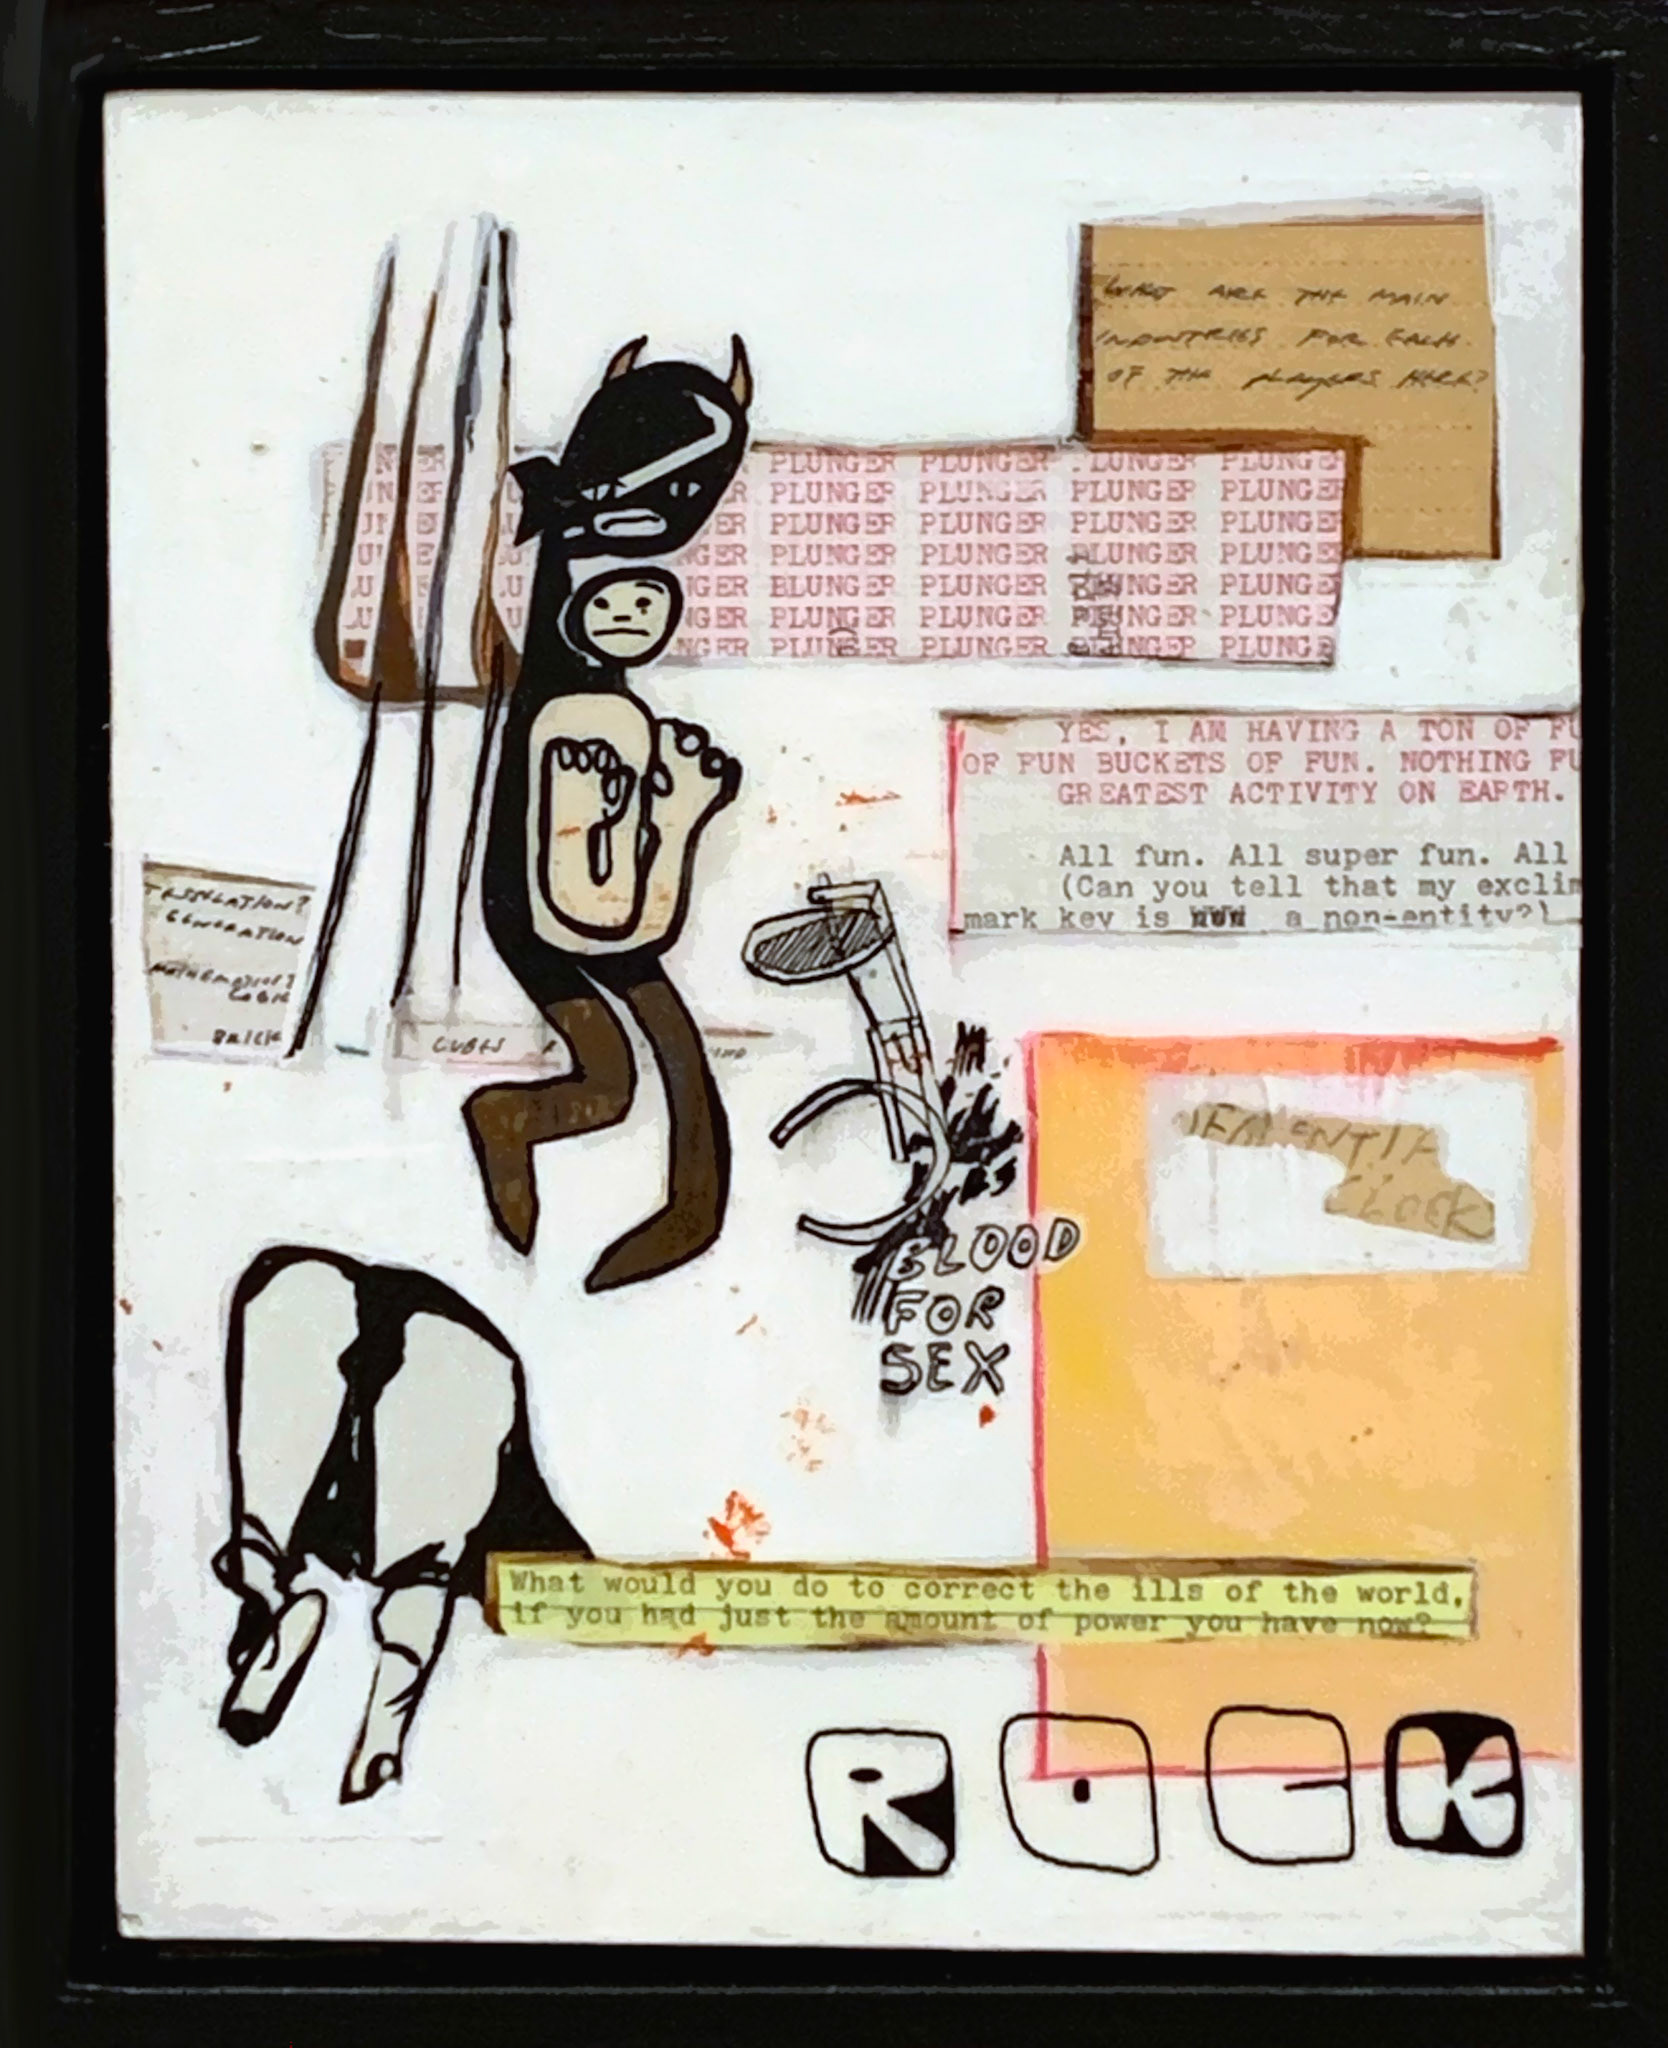 WHAT ARE THE MAIN
INDUSTRIES FOR EACH
OF THE PLAYERS HERE?
PLUNGER PLUNGER .LUNGER PLUNGE
ER PLUNGER PLUNGER PLUNGER PLUNGER
GER PLUNGER PLUNGER PLUNGER PLUNGE
NGER PLUNGER PLUNGER PLUNGER PLUNGE
NGER BLUNGER PLUNGER PLUNGER PLUNGE
NGER PLUNGER PLUNGER PLUNGER PLUNGE
NGER PLUNGER PLUNGER PLUNGER PLUNGE
YES, I AM HAVING A TON OF FU
OF FUN BUCKETS OF FUN. NOTHING FU
GREATEST ACTIVITY ON EARTH.
All fun. All super fun. All
(Can you tell that my exclim
mark key is a non-entity?)
GENERATION
LOGIC
BRICK
CUBES
CLOCK
BLOOD
FOR
SEX
What would you do to correct the ills of the world,
if you had just the amount of power you have now?
ROCK